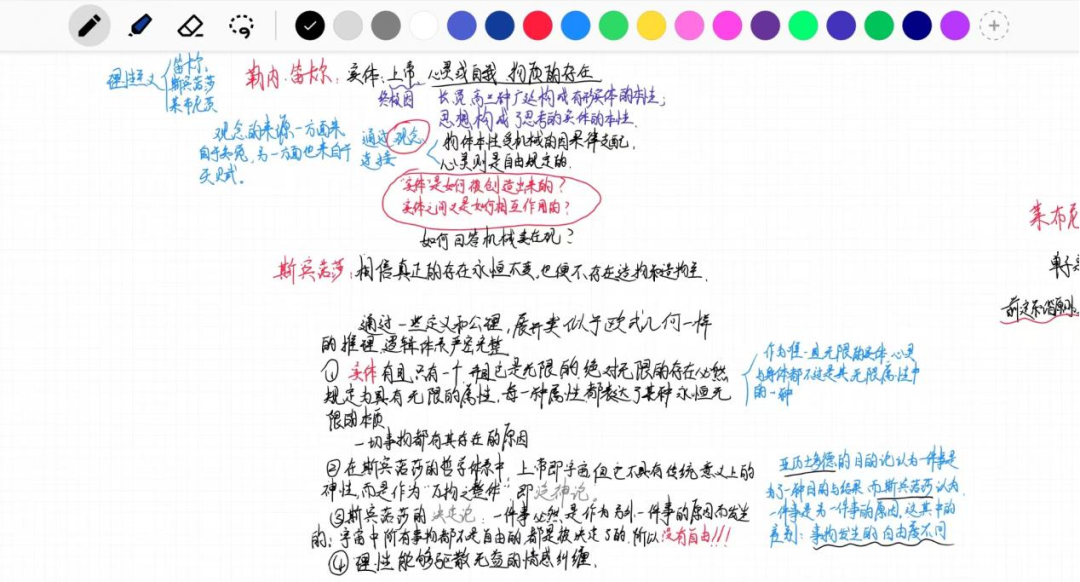 理性主义
笛卡尔
斯宾诺莎
莱布尼茨
勒内·笛卡尔：实体：上帝 心灵或自我 物质的存在
终极因
长宽高三种广延构成有形实体的本性；
思想构成了思考的实体的本性
观念的来源一方面来
自于先天，另一方面也来自于
天赋。
通过观念
连接
物体本性受机械的因果律支配，
心灵则是自由规定的.
“实体”是如何被创造出来的？
实体之间又是如何相互作用的？
如何回答机械实在观？
莱布尼
斯宾诺莎：相信真正的存在永恒不变，也便不存在造物和造物主.
单子
前定和谐
通过一些定义和公理，展开类似于欧式几何一样
的推理，逻辑体系严密完整
① 实体有且只有一个 并且它是无限的 绝对无限的存在必然
规定为具有无限的属性，每一种属性都表达了某种永恒无
限的本质
作为唯一且无限的实体，心灵
与身体都不过是其无限属性中
的一种
一切事物都有其存在的原因
②在斯宾诺莎的哲学体系中，上帝即宇宙，但它不具有传统意义上的
神性，而是作为“万物之整体” 即泛神论
③斯宾诺莎的决定论：一件事必然是作为另外一件事的原因而发生
的；宇宙中所有事物都不是自由的，都是被决定了的，所以没有自由!!!
亚历士多德的目的论认为一件事是
为了一种目的与结果，而斯宾诺莎认为
一件事是另一件事的原因，这其中的
差别：事物发生的自由度不同
④ 理性能够驱散无益的情感纠缠.